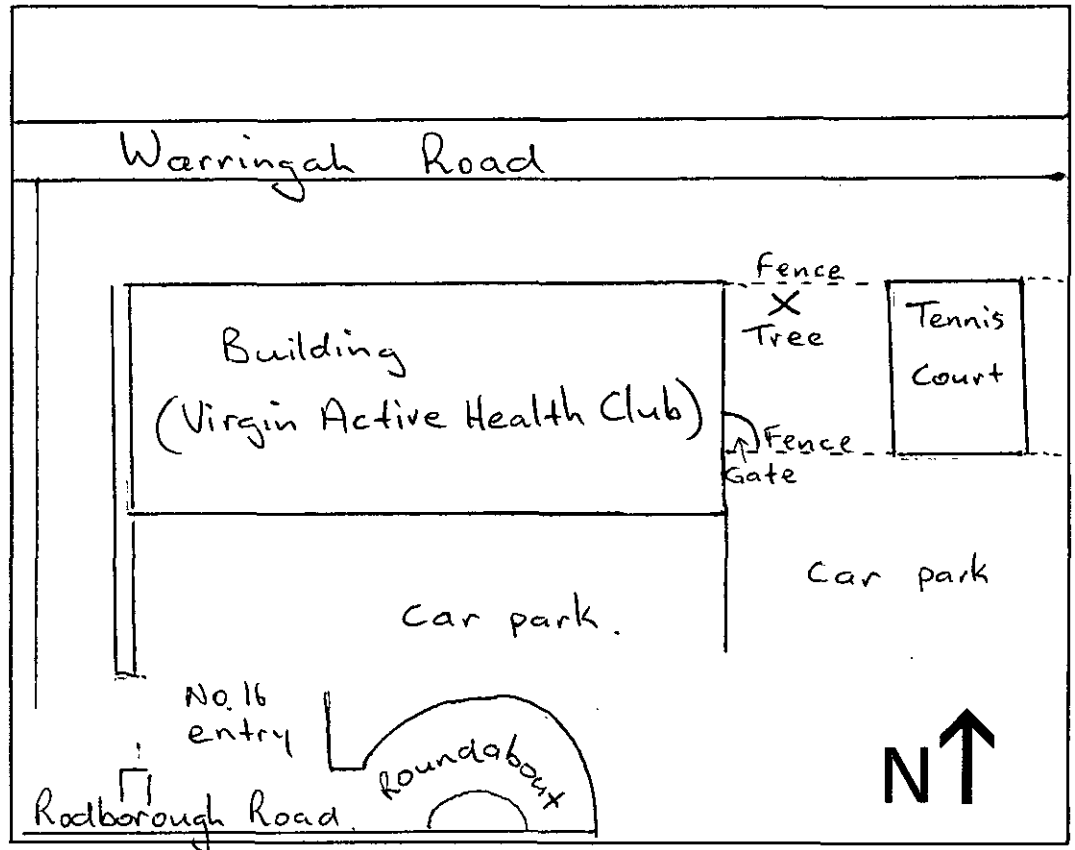 Warringah Road
Fence
Tree
Tennis
Court
Building
(Virgin Active Health Club)
Fence
Gate
Car park
Car park.
No. 16
entry
Roundabout
N
Rodborough Road.